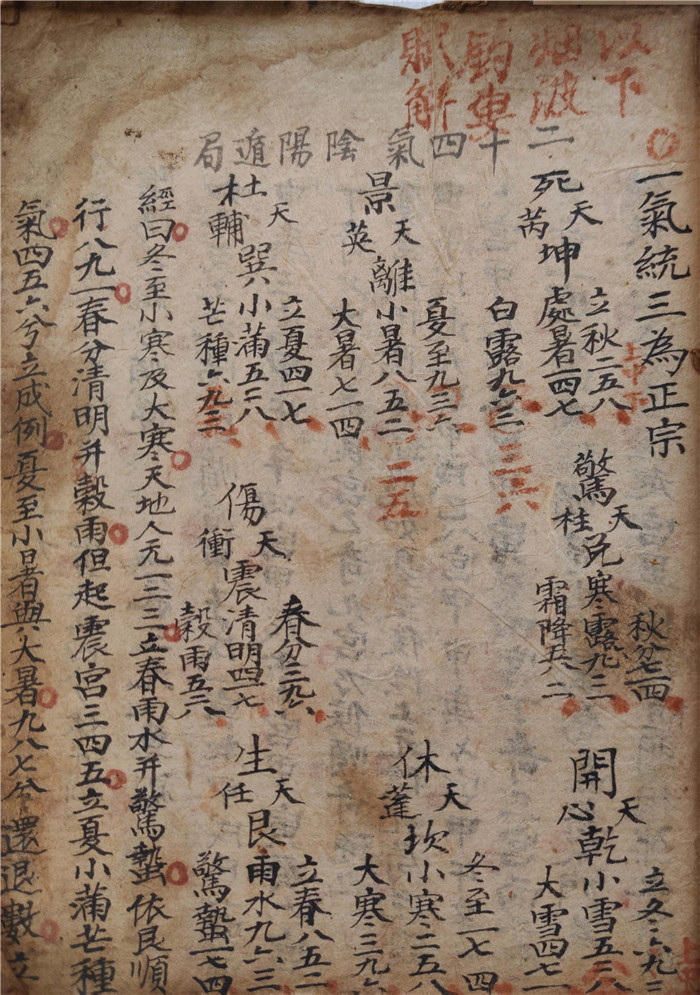 以下
烟波
釣叟
賦解
二十四氣陰陽遁局
一氣統三為正宗
死天芮坤
立秋二五八
處暑一四七
白露九六三
三六
驚天柱兌
秋分七一四
寒露九三
霜降五八二
開天心乾
立冬六九三
小雪五二八
大雪四七一
景天英離
夏至九三六
小暑八五二
大暑七一四
二五
休天蓬坎
冬至一七四
小寒二五八
大寒三九六
杜天輔巽
立夏四一七
小蒲五二八
芒種六九三
傷天衝震
春分三九六
清明四一七
穀雨五二八
生天任艮
立春八五二
雨水九六三
驚蟄一七四
經曰冬至小寒及大寒天地人元一二三立春雨水并驚蟄依艮順
行八九一春分清明并穀雨但起震宮三四五立夏小蒲芒種
氣四五六兮立成例夏至小暑與大暑九八七兮還退數立